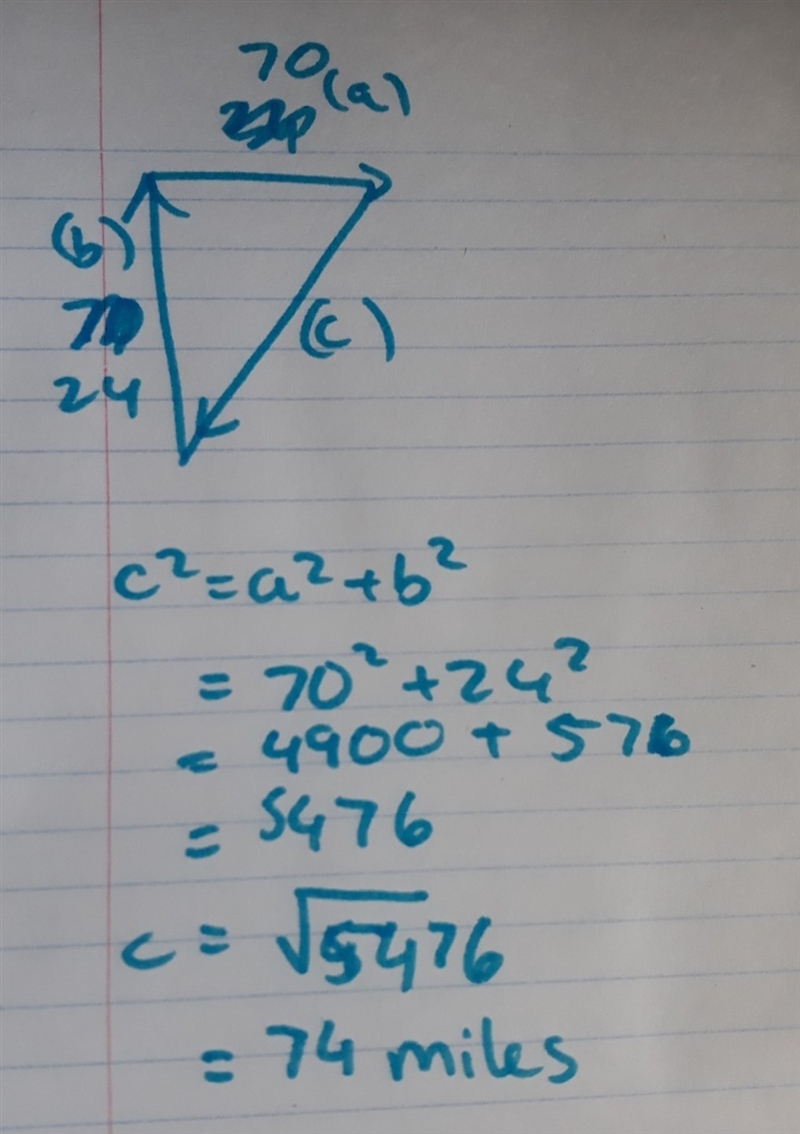 70
(a)
(b)
24
(c)
c² = a² + b²
= 70² + 24²
= 4900 + 576
= 5476
c = √5476
= 74 miles